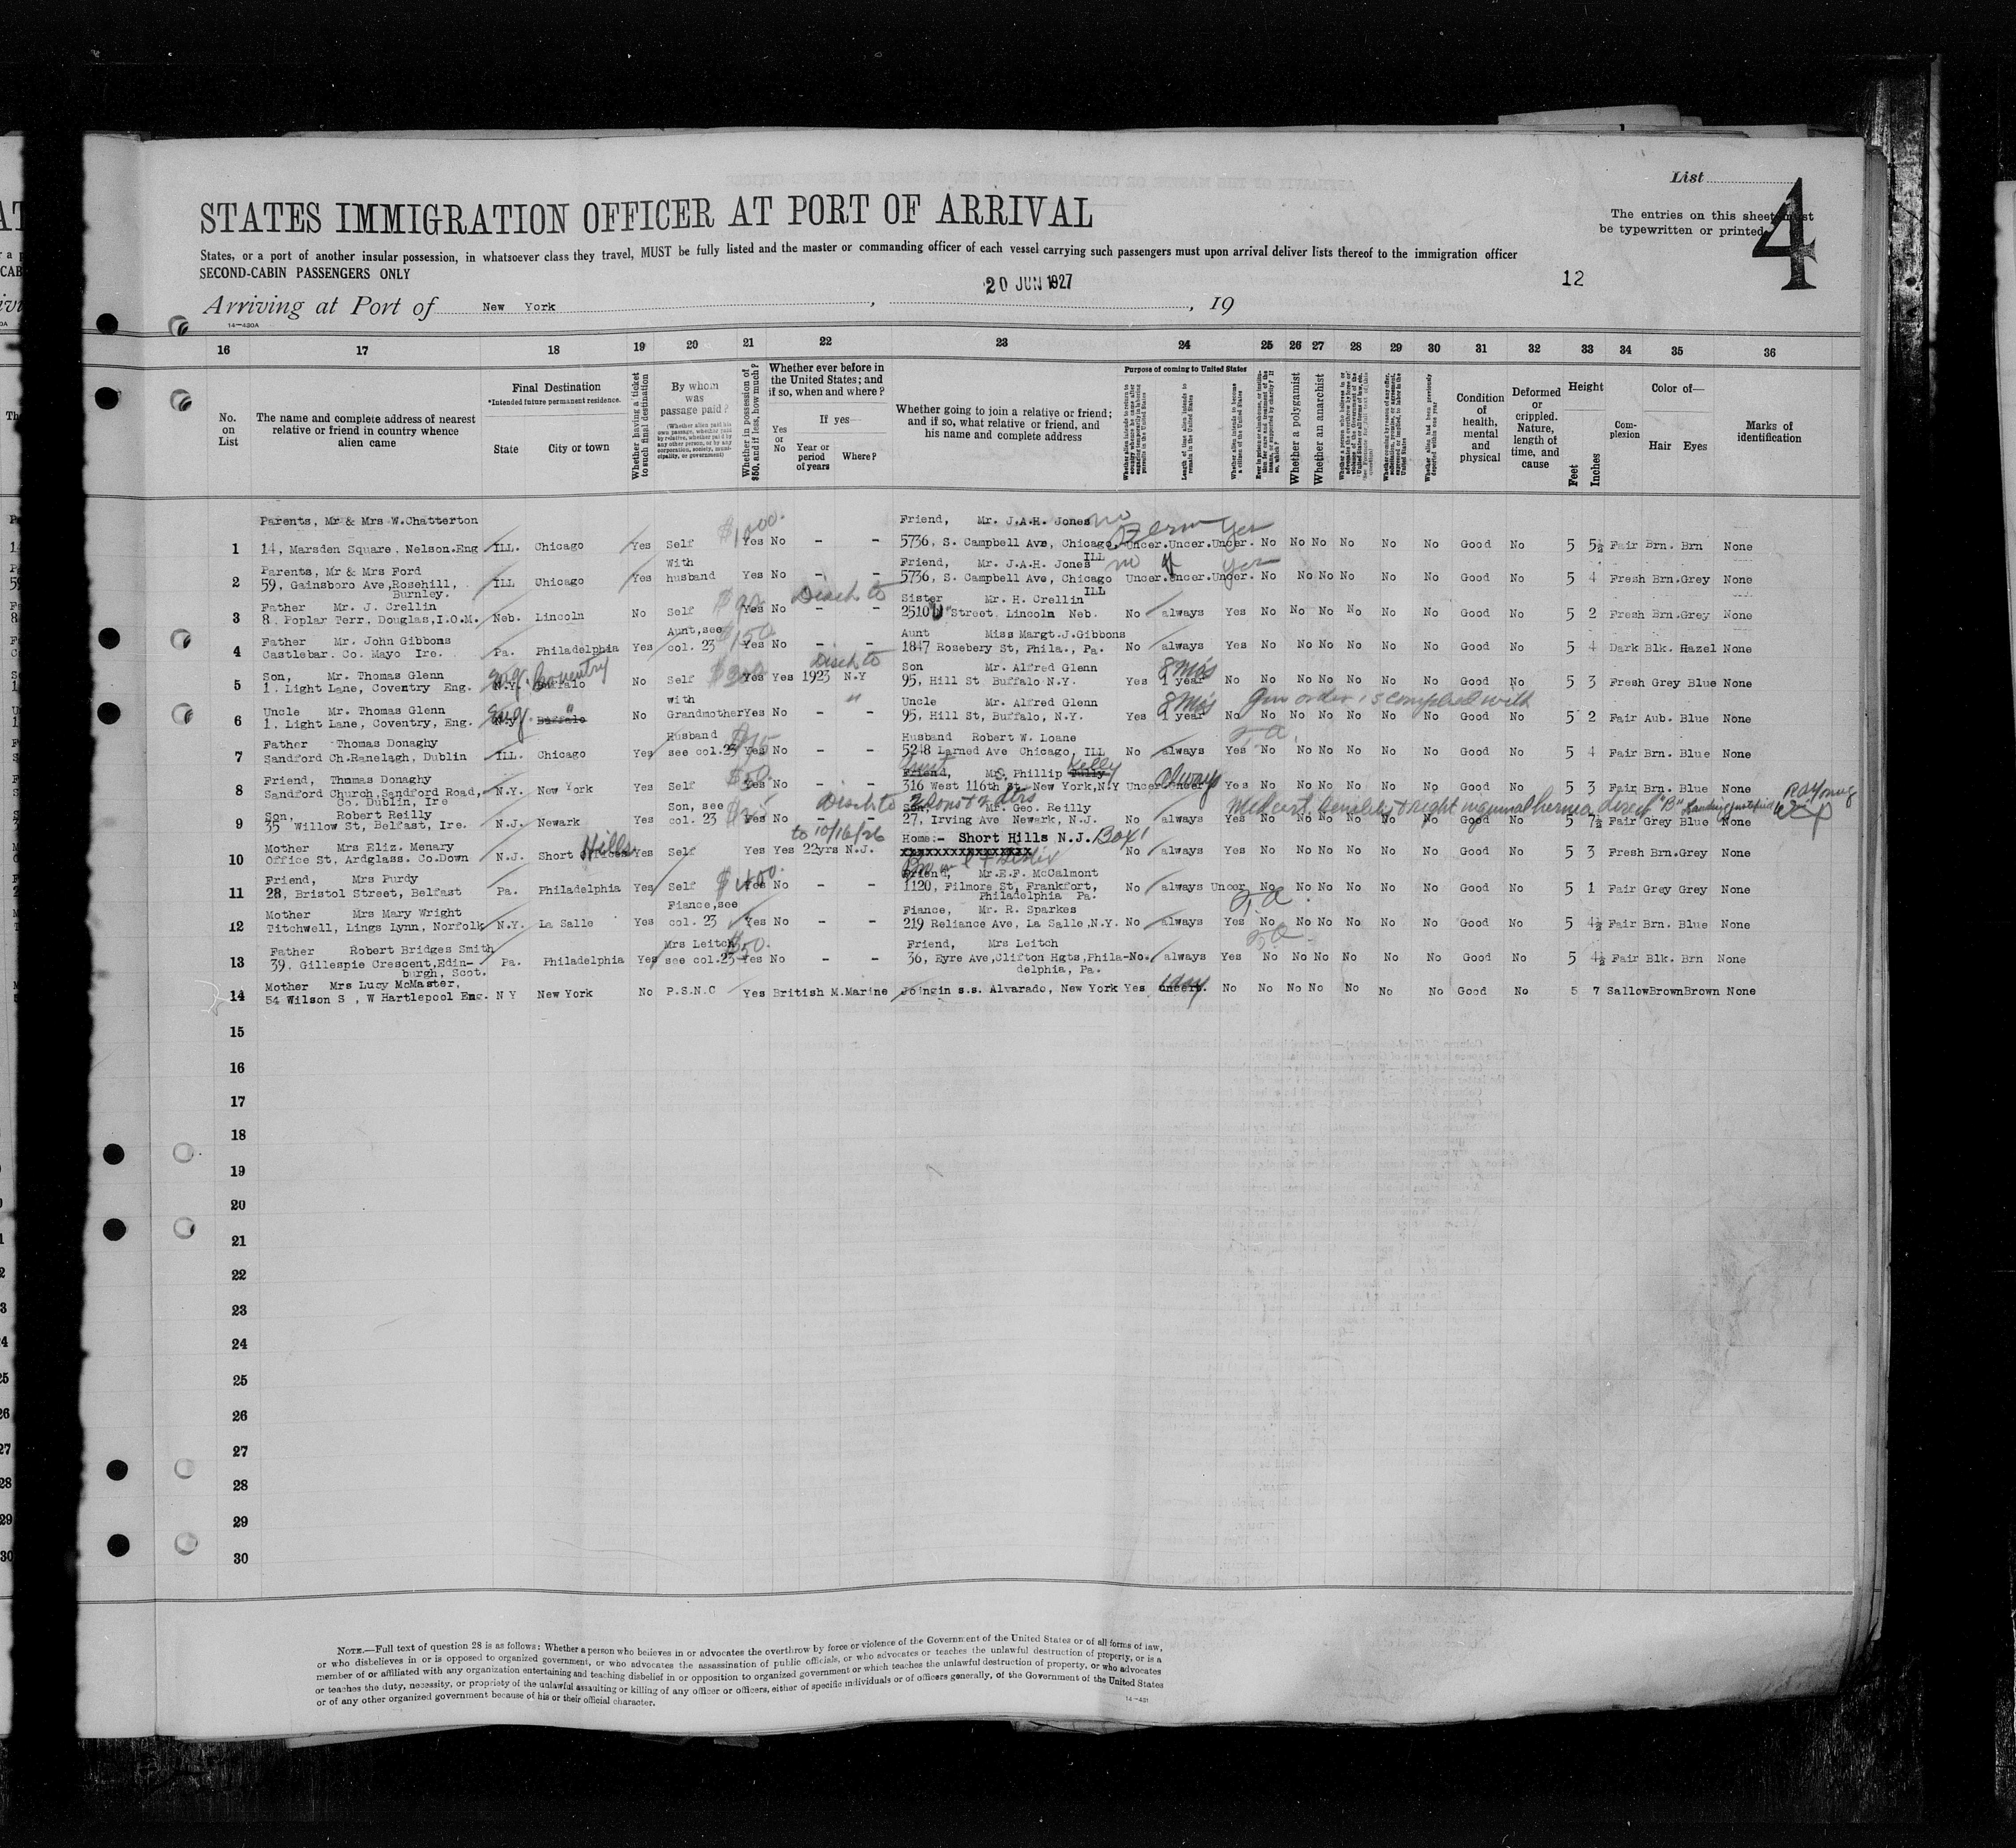 List 4
STATES IMMIGRATION OFFICER AT PORT OF ARRIVAL
The entries on this sheet must
be typewritten or printed.
States, or a port of another insular possession, in whatsoever class they travel, MUST be fully listed and the master or commanding officer of each vessel carrying such passengers must upon arrival deliver lists thereof to the immigration officer
SECOND-CABIN PASSENGERS ONLY
12
Arriving at Port of New York, 20 JUN 1927, 19
14—430A
16 17 18 19 20 21 22 23 24 25 26 27 28 29 30 31 32 33 34 35 36
No. on List
The name and complete address of nearest relative or friend in country whence alien came
Final Destination
*Intended future permanent residence.
State
City or town
Whether having a ticket to such final destination
By whom was passage paid?
(Whether alien paid his own passage, whether paid by relative, whether paid by any other person, or by any corporation, society, municipality, or government)
Whether in possession of $50, and if less, how much?
Whether ever before in the United States; and if so, when and where?
Yes or No
If yes—
Year or period of years
Where?
Whether going to join a relative or friend; and if so, what relative or friend, and his name and complete address
Purpose of coming to United States
Length of time alien intends to remain in the United States
Whether alien intends to become a citizen of the United States
Whether a polygamist
Whether an anarchist
Whether alien had been previously deported within one year
Condition of health, mental and physical
Deformed or crippled. Nature, length of time, and cause
Height
Feet
Inches
Complexion
Color of—
Hair Eyes
Marks of identification
Parents, Mr & Mrs W.Chatterton $1000. Friend, Mr. J.A.H. Jones no
1 14, Marsden Square, Nelson.Eng ILL. Chicago Yes Self Yes No - - 5736, S. Campbell Ave, Chicago, ILL Uncer.Uncer.Uncer. Yes No No No No No No Good No 5 5½ Fair Brn. Brn None
Parents, Mr & Mrs Ford With Friend, Mr. J.A.H. Jones no
2 59, Gainsboro Ave,Rosehill, Burnley. ILL Chicago Yes husband Yes No - - 5736, S. Campbell Ave, Chicago ILL Uncer.Uncer.Uncer. yes No No No No No No Good No 5 4 Fresh Brn.Grey None
Father Mr. J. Crellin Sister Mr. H. Crellin
3 8. Poplar Terr, Douglas,I.O.M. Neb. Lincoln No Self Yes No - - 2510 "U" Street, Lincoln Neb. No always Yes No No No No No No Good No 5 2 Fresh Brn.Grey None
Father Mr. John Gibbons Aunt,see $150. Aunt Miss Margt.J.Gibbons
4 Castlebar. Co. Mayo Ire. Pa. Philadelphia Yes col. 23 Yes No - - 1847 Rosebery St, Phila., Pa. No always Yes No No No No No No Good No 5 4 Dark Blk. Hazel None
Son, Mr. Thomas Glenn Eng. Coventry Son Mr. Alfred Glenn 8 Mo's
5 1. Light Lane, Coventry Eng. N.Y. Buffalo No Self Yes Yes 1923 N.Y 95, Hill St Buffalo N.Y. Yes 1 year No No No No No No No Good No 5 3 Fresh Grey Blue None
Uncle Mr. Thomas Glenn Eng. " with " Uncle Mr. Alfred Glenn 8 Mo's
6 1. Light Lane, Coventry, Eng. N.Y. Buffalo No Grandmother Yes No 95, Hill St, Buffalo, N.Y. Yes 1 year No No No No No No No Good No 5 2 Fair Aub. Blue None
Father Thomas Donaghy Husband Husband Robert W. Loane
7 Sandford Ch.Ranelagh, Dublin ILL. Chicago Yes see col.23 Yes No - - 5248 Larned Ave Chicago, ILL No always Yes No No No No No No Good No 5 4 Fair Brn. Blue None
Friend, Thomas Donaghy $50. Aunt Friend, Mrs. Phillip Tully Kelly always
8 Sandford Church,Sandford Road, Co. Dublin, Ire N.Y. New York Yes Self Yes No - - 316 West 116th St. New York,N.Y Uncer Uncer Yes No No No No No No Good No 5 3 Fair Brn. Blue None
Son, Robert Reilly Son, see Son, Mr. Geo. Reilly
9 35 Willow St, Belfast, Ire. N.J. Newark Yes col. 23 Yes No - - 27, Irving Ave Newark, N.J. No always Yes No No No No No No Good No 5 7½ Fair Grey Blue None
Mother Mrs Eliz. Menary Hills to 10/16/26 Home:- Short Hills N.J. Box 1
10 Office St, Ardglass. Co.Down N.J. Short Yes Self Yes Yes 22yrs N.J. xxxxxxxxxxxxxxxxx No always Yes No No No No No No Good No 5 3 Fresh Brn.Grey None
Friend, Mrs Purdy $400. Friend, Mr.E.F. McCalmont
11 28, Bristol Street, Belfast Pa. Philadelphia Yes Self Yes No - - 1120, Filmore St, Frankfort, Philadelphia Pa. No always Uncer No No No No No No Good No 5 1 Fair Grey Grey None
Mother Mrs Mary Wright Fiance,see Fiance, Mr. R. Sparkes
12 Titchwell, Lings Lynn, Norfolk N.Y. La Salle Yes col. 23 Yes No - - 219 Reliance Ave, La Salle,N.Y. No always Yes No No No No No No Good No 5 4½ Fair Brn. Blue None
Father Robert Bridges Smith Mrs Leitch $50. Friend, Mrs Leitch
13 39. Gillespie Crescent,Edinburgh, Scot. Pa. Philadelphia Yes see col.23 Yes No - - 36, Eyre Ave,Clifton Hgts,Philadelphia, Pa. No. always Yes No No No No No No Good No 5 4½ Fair Blk. Brn None
Mother Mrs Lucy McMaster, 1 day
14 54 Wilson S , W Hartlepool Eng. N Y New York No P.S.N.C Yes British M.Marine Joingin s.s. Alvarado, New York Yes uncert. No No No No No No No Good No 5 7 Sallow Brown Brown None
15
16
17
18
19
20
21
22
23
24
25
26
27
28
29
30
NOTE.—Full text of question 28 is as follows: Whether a person who believes in or advocates the overthrow by force or violence of the Government of the United States or of all forms of law,
or who disbelieves in or is opposed to organized government, or who advocates the assassination of public officials, or who advocates or teaches the unlawful destruction of property, or is a
member of or affiliated with any organization entertaining and teaching disbelief in or opposition to organized government or which teaches the unlawful destruction of property, or who advocates
or teaches the duty, necessity, or propriety of the unlawful assaulting or killing of any officer or officers, either of specific individuals or of officers generally, of the Government of the United States
or of any other organized government because of his or their official character.
14—431